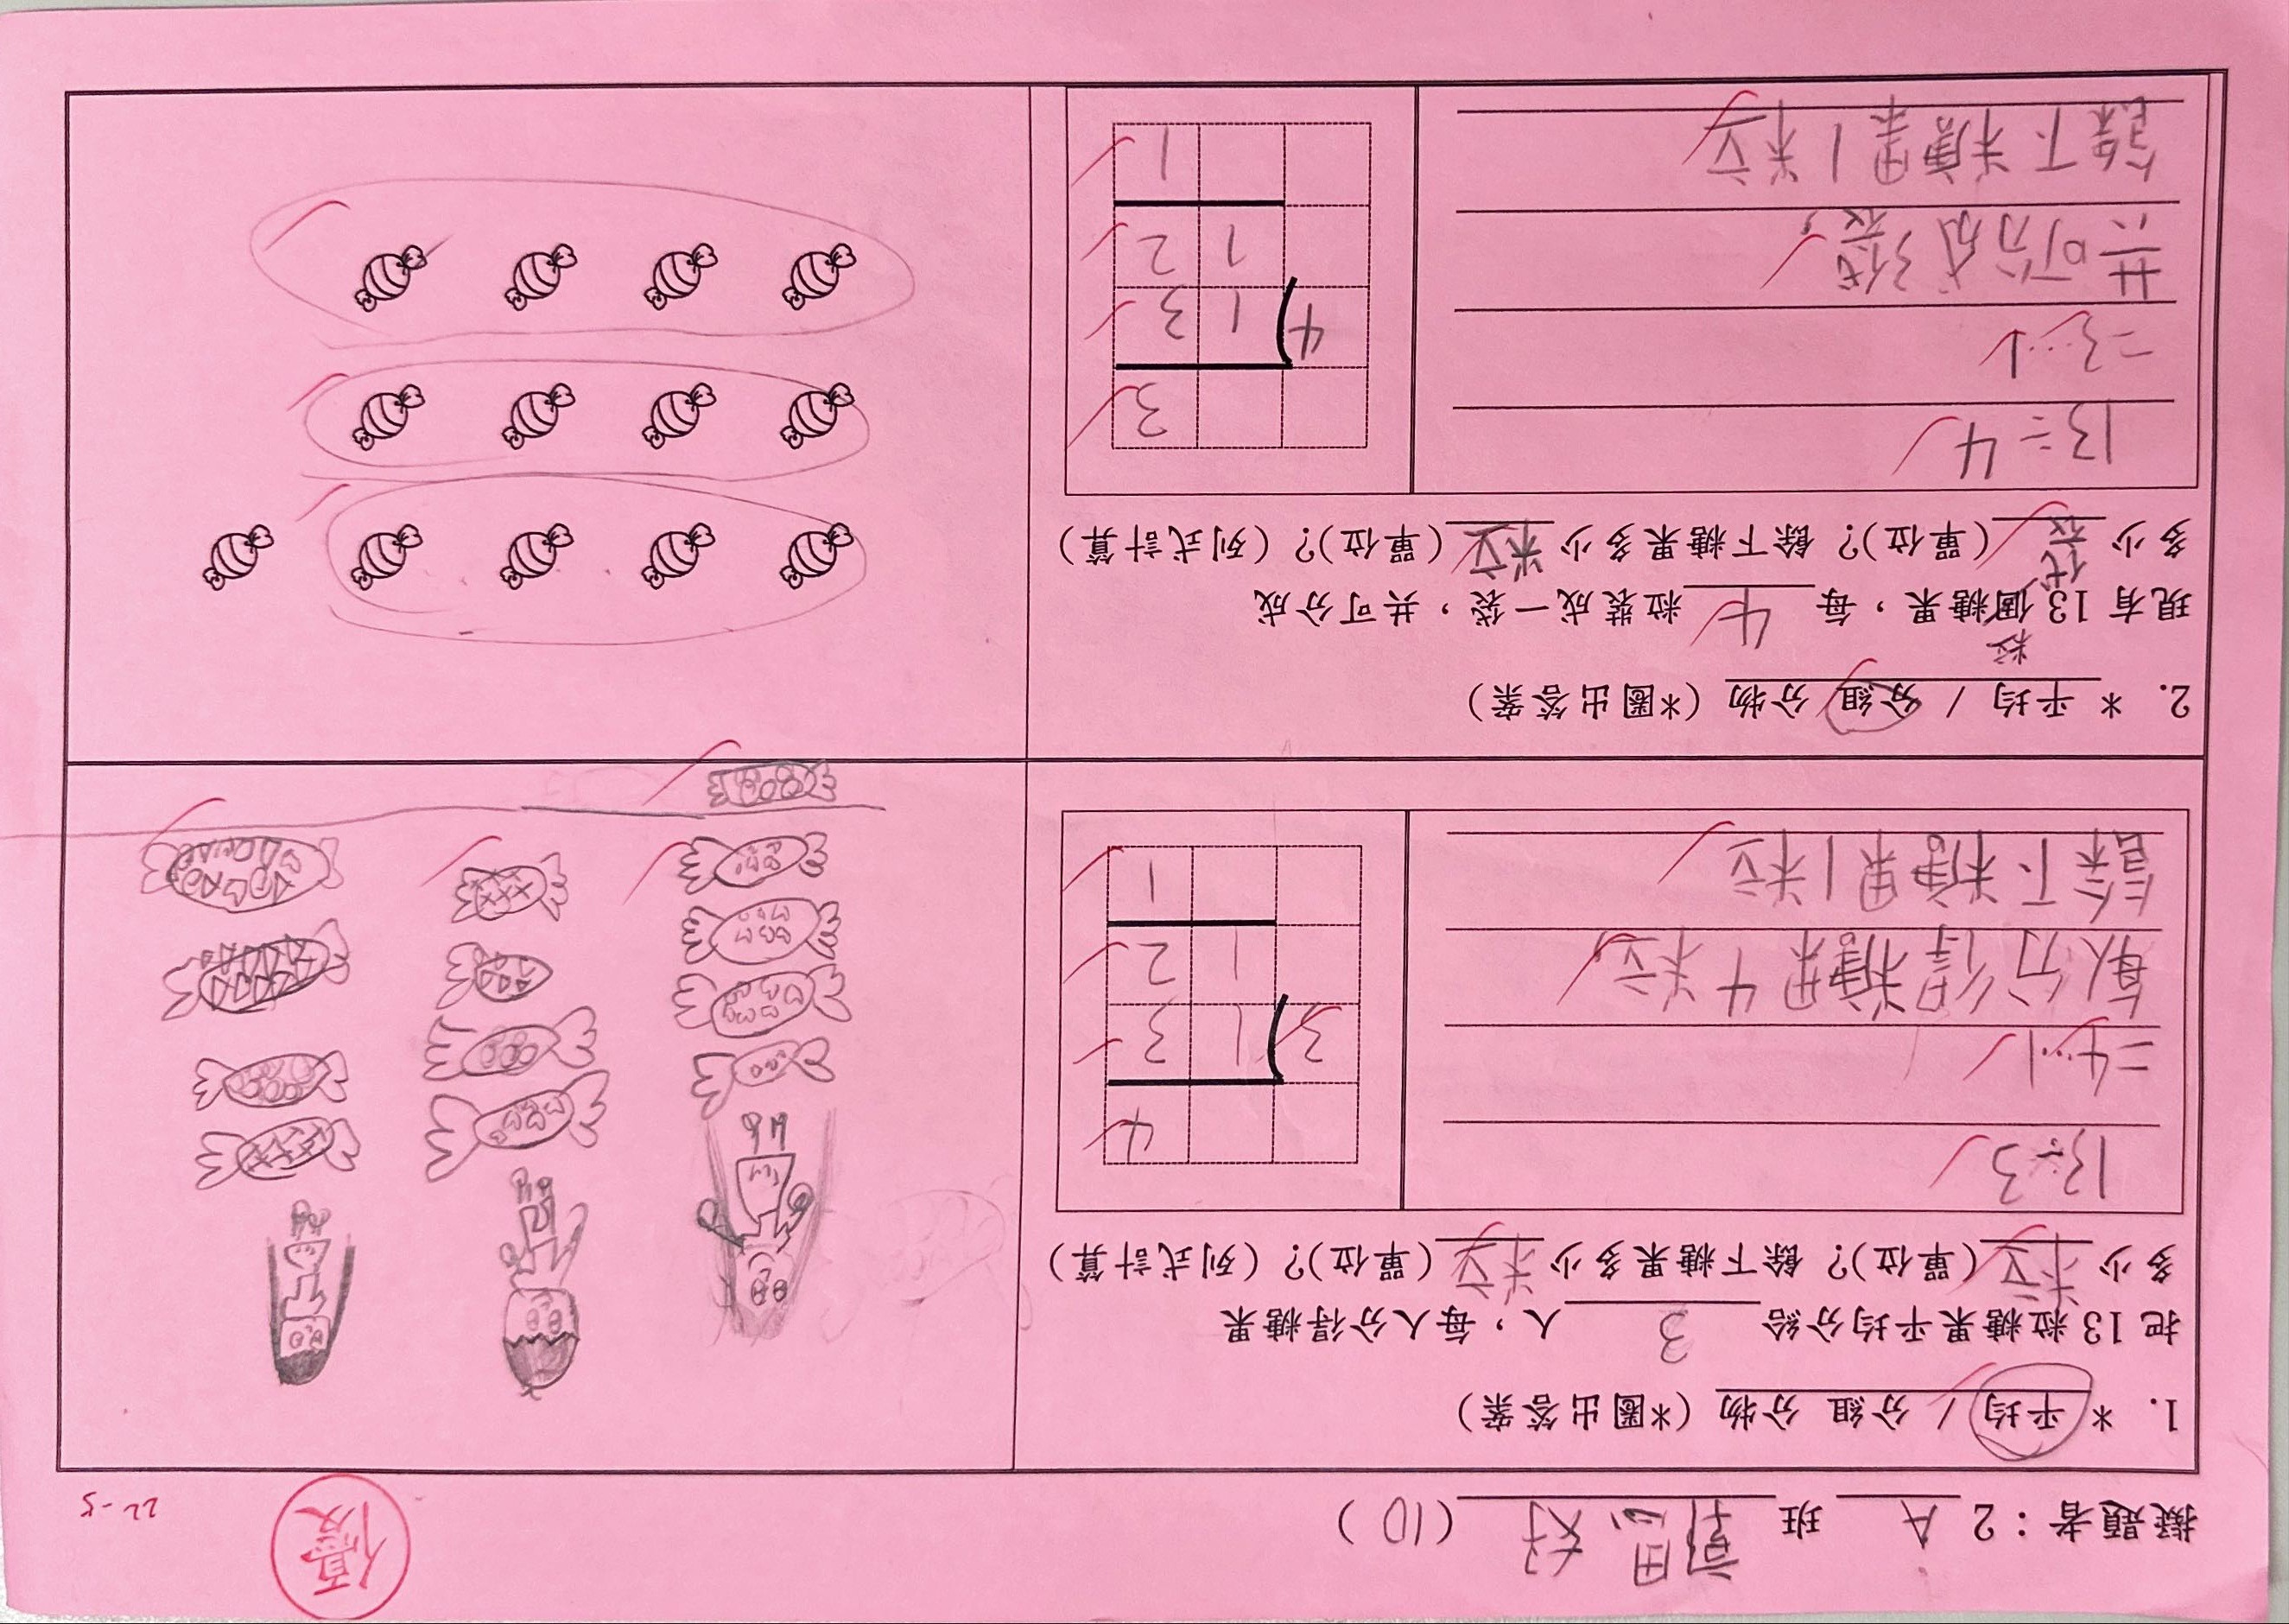 擬題者：2 A 班 郭思妤 (10)
優
22-5
1. * 平均 / 分組 分物 (*圈出答案)
把 13 粒糖果平均分給 3 人，每人分得糖果
多少 粒 (單位)？餘下糖果多少 粒 (單位)？(列式計算)
13÷3
=4…1
每人分得糖果4粒
餘下糖果1粒
4
3 1 3
1 2
1
2. * 平均 / 分組 分物 (*圈出答案)
粒
現有 13 個糖果，每 4 粒裝成一袋，共可分成
多少 袋 (單位)？餘下糖果多少 粒 (單位)？(列式計算)
13÷4
=3…1
共可分成3袋，
餘下糖果1粒
3
4 1 3
1 2
1